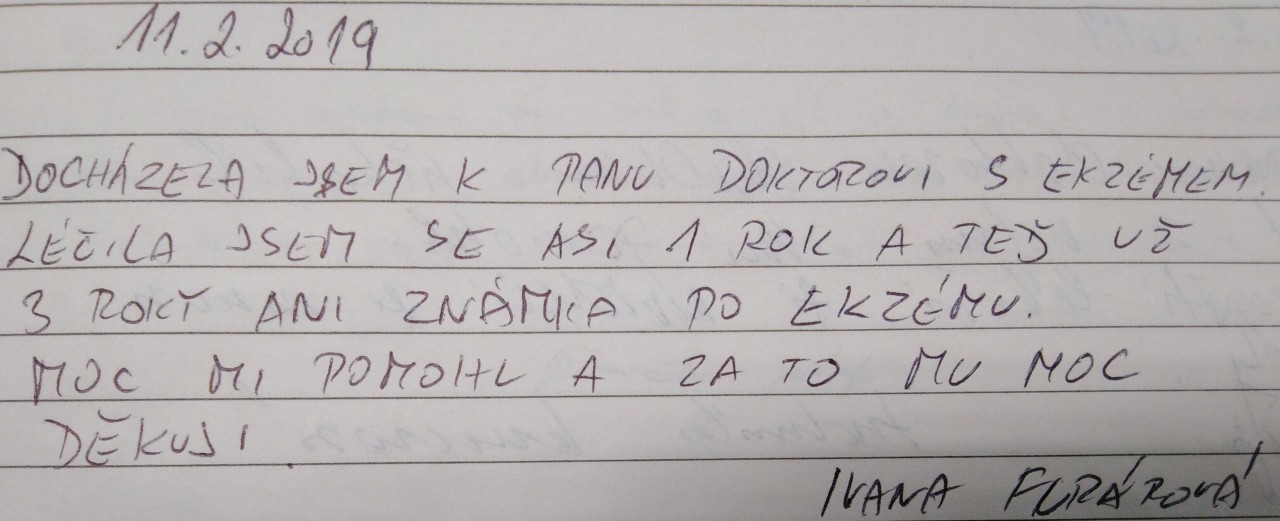 11.2.2019
DOCHÁZELA JSEM K PANU DOKTOROVI S EKZÉMEM.
LÉČILA JSEM SE ASI 1 ROK A TEĎ UŽ
3 ROKY ANI ZNÁMKA PO EKZÉMU.
MOC MI POMOHL A ZA TO MU MOC
DĚKUJI.
IVANA